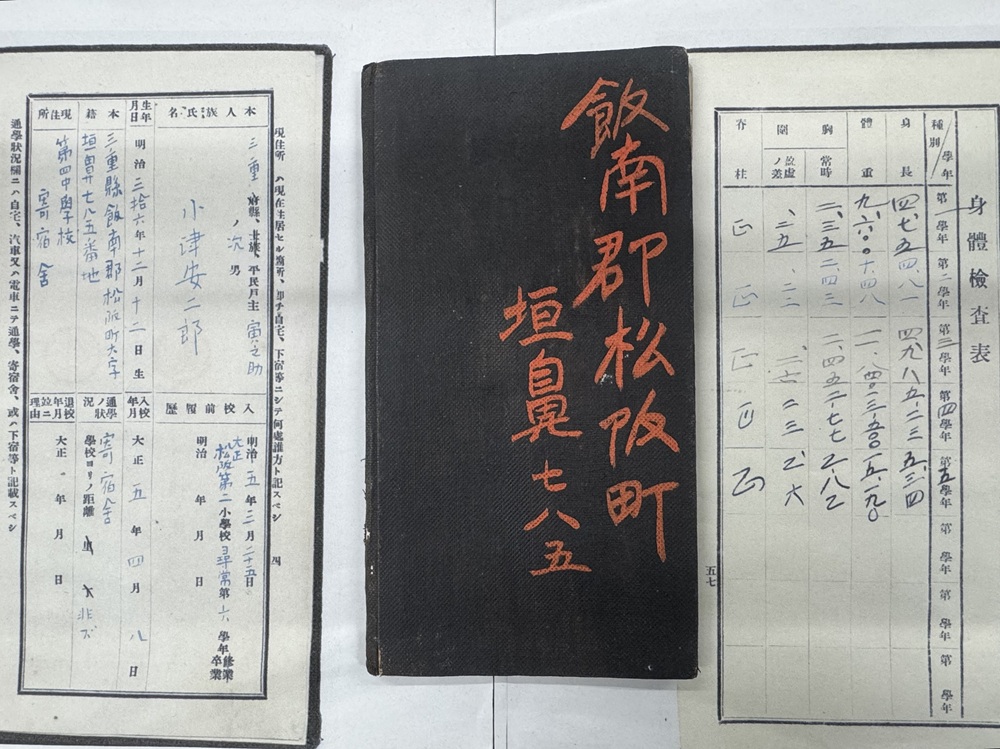 飯南郡松阪町
垣鼻七八五
現住所ハ現在住居セル處所、卽チ自宅、下宿等ニシテ何處誰方ト記スベシ
四
本人族籍氏名
三重府縣、士族、平民戶主 寅之助
ノ次男
小津安二郎
生年月日
明治三拾六年十二月十二日生
本籍
三重縣飯南郡松阪町大字
垣鼻七八五番地
現住所
第四中學校
寄宿舍
入校前履歷
明治 大正 五年三月二十五日
松阪第二小學校尋常第六學年修業 卒業
明治 年 月 日
入校年月
大正五年四月八日
通學ノ狀況
寄宿舍
學校ヨリノ距離 里
退校年月竝ニ理由
大正 年 月 日
通學狀況欄ニハ自宅、汽車又ハ電車ニテ通學、寄宿舍、或ハ下宿等ト記載スベシ
身體檢查表
種別/學年
第一學年
第二學年
第三學年
第四學年
第五學年
第 學年
第 學年
第 學年
身長
四、七五
四、八一
四、九八
五、二三
五、三四
體重
九、六〇〇
一〇、四八
一一、四〇
一三、五〇
一五、九〇
胸圍
常時
二、三五
二、四三
二、四五
二、七七
二、八二
盈虛ノ差
、二五
、二二
、二六
、二三
、二六
脊柱
正
正
正
正
正
五七